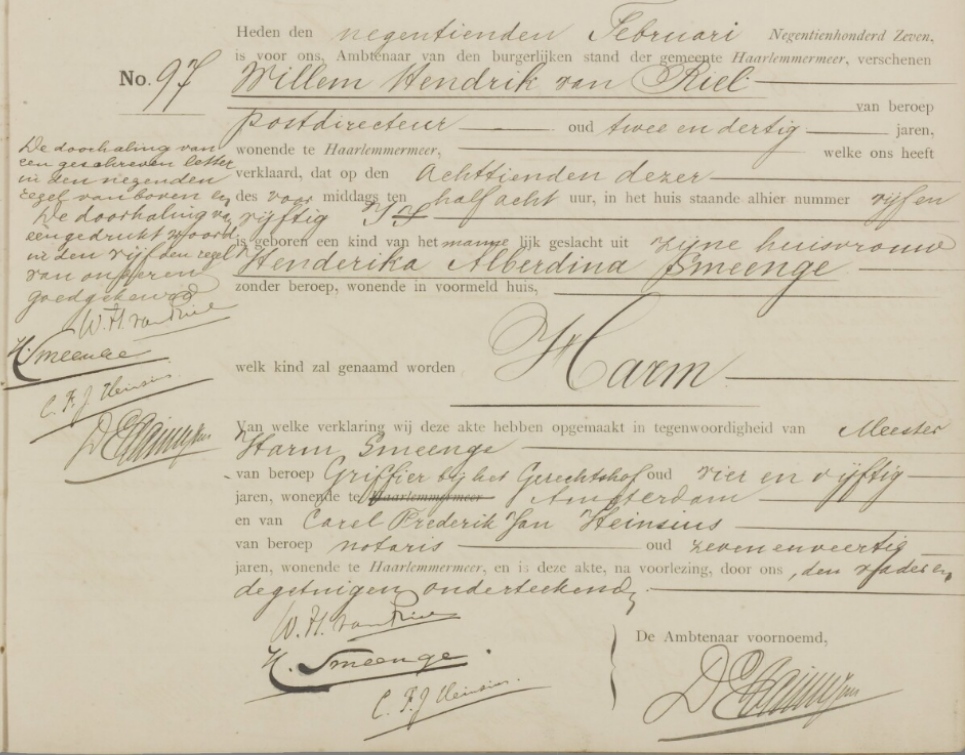 Heden den negentienden Februari Negentienhonderd Zeven,
is voor ons, Ambtenaar van den burgerlijken stand der gemeente Haarlemmermeer, verschenen
No. 97
Willem Hendrik van Riel
van beroep
postdirecteur oud twee en dertig jaren,
wonende te Haarlemmermeer, welke ons heeft
verklaard, dat op den Achttienden dezer
des voor middags ten half acht uur, in het huis staande alhier nummer vijf en
vijftig
is geboren een kind van het manne lijk geslacht uit zijne huisvrouw
Henderika Alberdina Smeenge
zonder beroep, wonende in voormeld huis,
welk kind zal genaamd worden Harm
Van welke verklaring wij deze akte hebben opgemaakt in tegenwoordigheid van Meester
Harm Smeenge
van beroep Griffier bij het Gerechtshof oud vier en vijftig
jaren, wonende te Haarlemmermeer Amsterdam
en van Carel Frederik Jan Heinsius
van beroep notaris oud zevenenveertig
jaren, wonende te Haarlemmermeer, en is deze akte, na voorlezing, door ons, den vader en
de getuigen onderteekend
De doorhaling van
een geschreven letter
in den negenden
regel van boven en
De doorhaling van
een gedrukt woord
in den vijfden regel
van onderen
goedgekeurd
W. H. van Riel
H. Smeenge
C. F. J. Heinsius
W. H. van Riel
H. Smeenge
C. F. J. Heinsius
De Ambtenaar voornoemd,